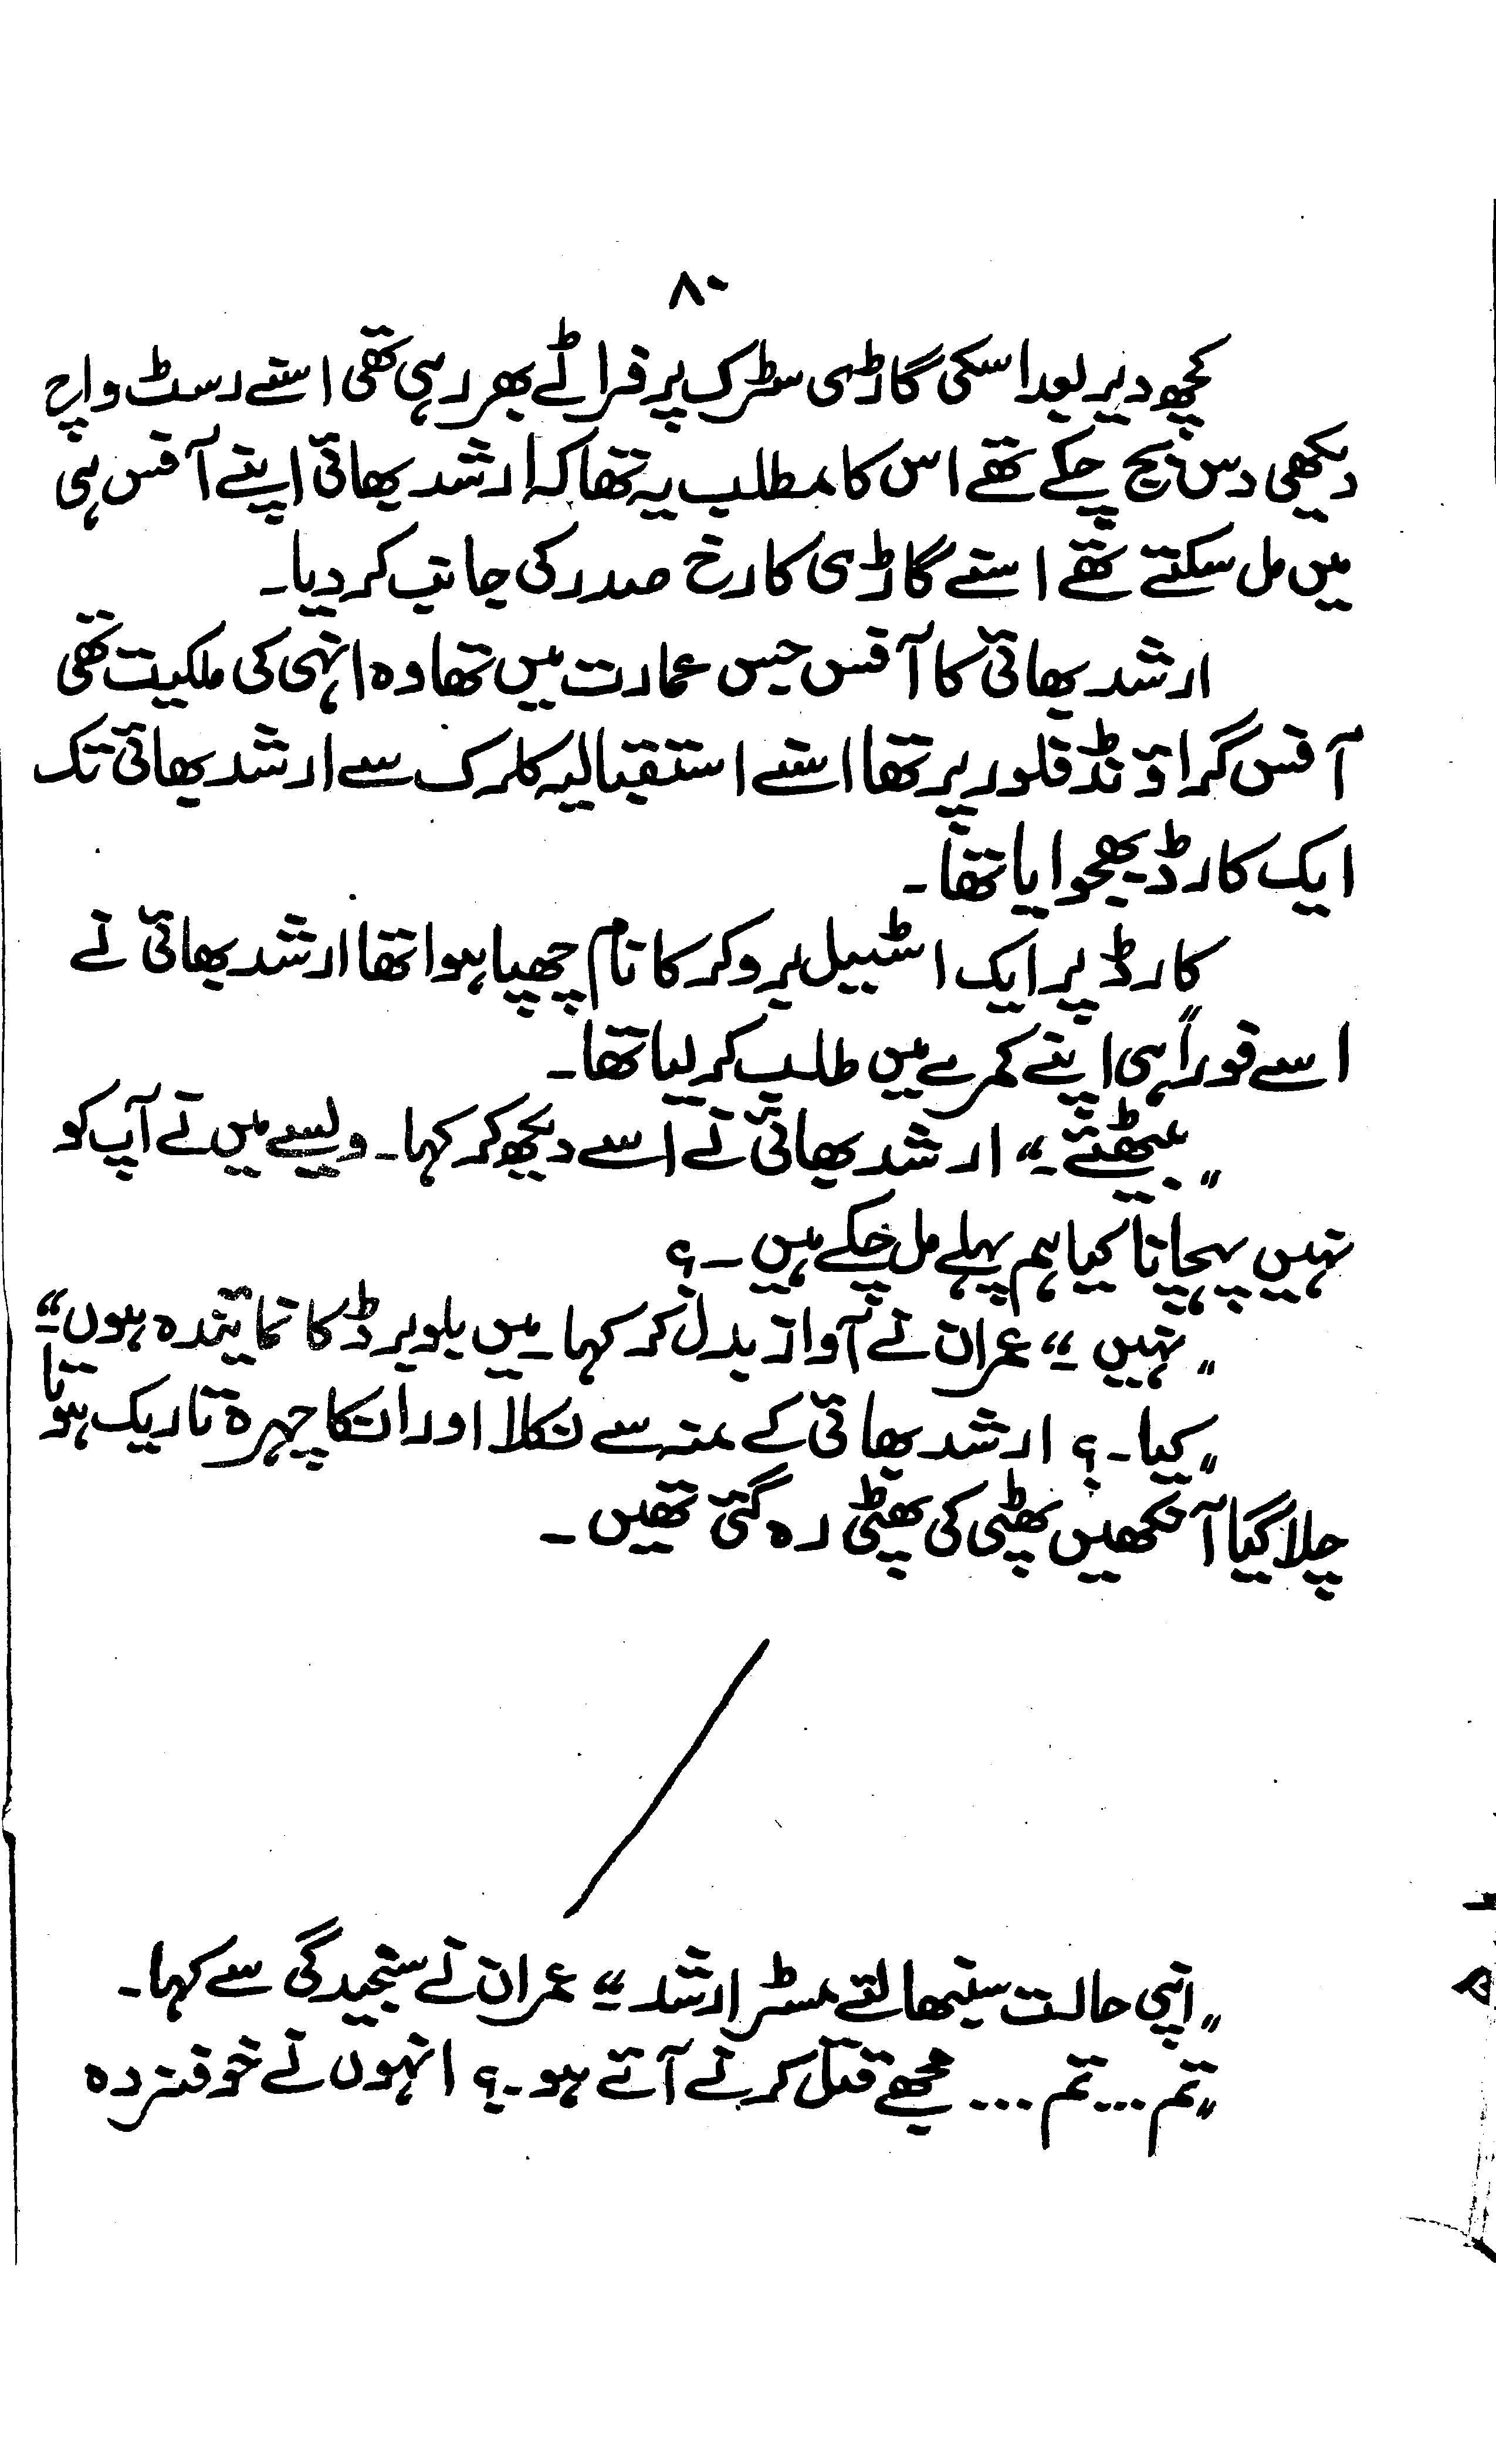 ۸۰
کچھ دیر بعد اسکی گاڑی سڑک پر فراٹے بھر رہی تھی اسنے رسٹ واچ
دیکھی دس بج چکے تھے اس کا مطلب یہ تھا کہ ارشد بھائی اپنے آفس ہی
میں مل سکتے تھے اسنے گاڑی کا رخ صدر کی جانب کر دیا۔
ارشد بھائی کا آفس جس عمارت میں تھا وہ انہی کی ملکیت تھی
آفس گراؤنڈ فلور پر تھا اسنے استقبالیہ کلرک سے ارشد بھائی تک
ایک کارڈ بھجوایا تھا۔
کارڈ پر ایک اسٹیل بروکر کا نام چھپا ہوا تھا ارشد بھائی نے
اسے فوراً ہی اپنے کمرے میں طلب کر لیا تھا۔
"بیٹھئے۔" ارشد بھائی نے اسے دیکھ کر کہا۔ ویسے میں نے آپ کو
نہیں پہچانا کیا ہم پہلے مل چکے ہیں۔؟
"نہیں۔" عمران نے آواز بدل کر کہا۔ میں بلو برڈ کا نمائندہ ہوں۔"
"کیا۔؟ ارشد بھائی کے منہ سے نکلا اور انکا چہرہ تاریک ہوتا
چلا گیا آنکھیں پھٹی کی پھٹی رہ گئی تھیں۔
"اپنی حالت سنبھالئے مسٹر ارشد۔" عمران نے سنجیدگی سے کہا۔
"تم... تم... مجھے قتل کرنے آئے ہو۔؟ انہوں نے خوفزدہ